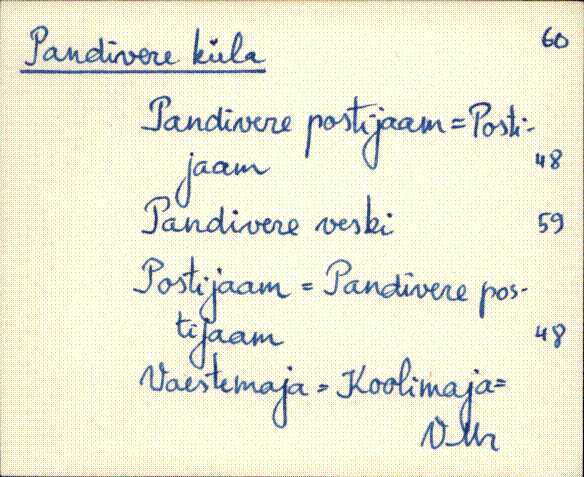 Pandivere küla 60
Pandivere postijaam = Posti-
jaam 48
Pandivere veski 59
Postijaam = Pandivere pos-
tijaam 48
Vaestemaja = Koolimaja =